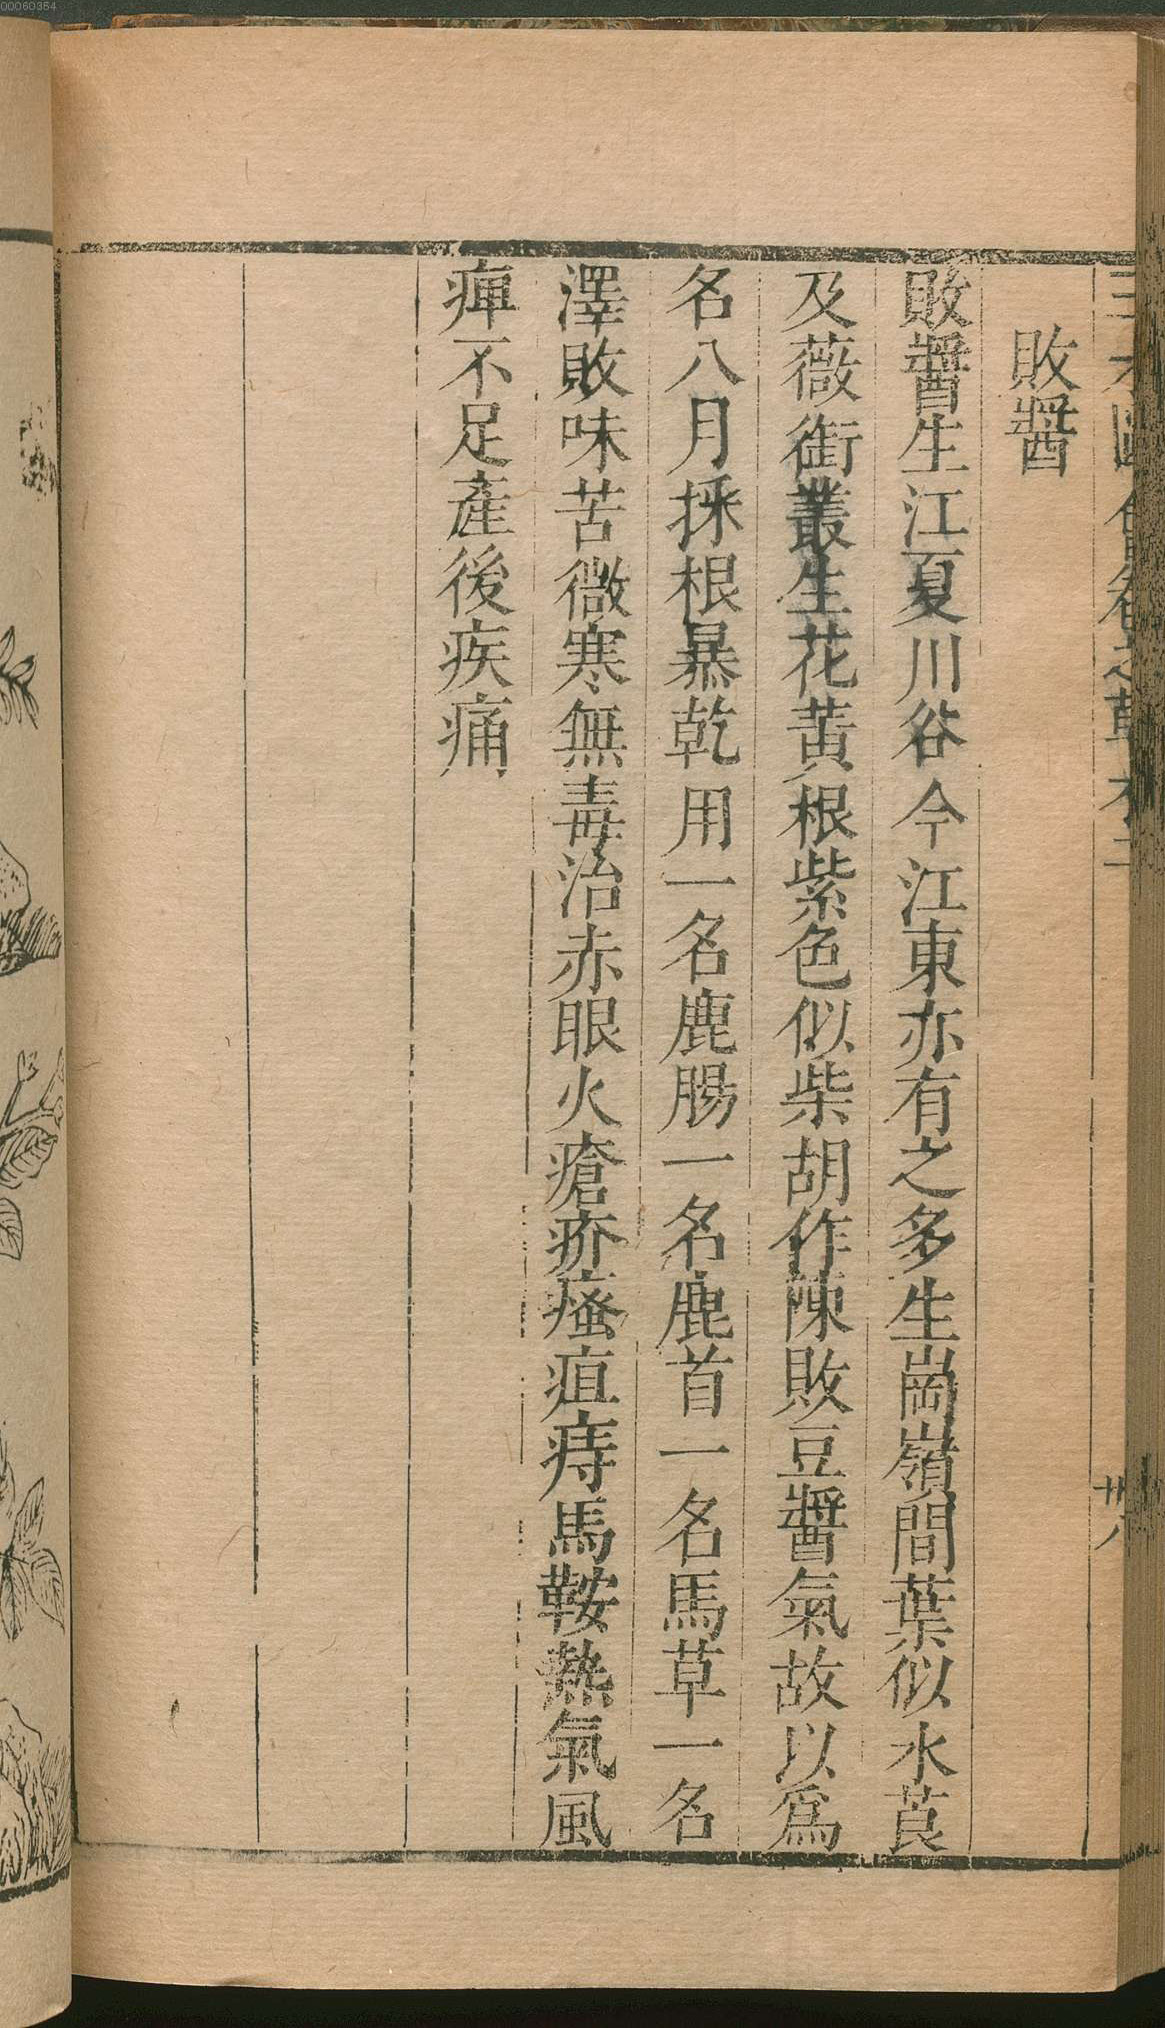 00060354
敗醬
敗醬生江夏川谷今江東亦有之多生崗嶺間葉似水莨
及薇銜叢生花黃根紫色似柴胡作陳敗豆醬氣故以爲
名八月採根暴乾用一名鹿腸一名鹿首一名馬草一名
澤敗味苦微寒無毒治赤眼火瘡疥瘙疽痔馬鞍熱氣風
痺不足產後疾痛
卅八